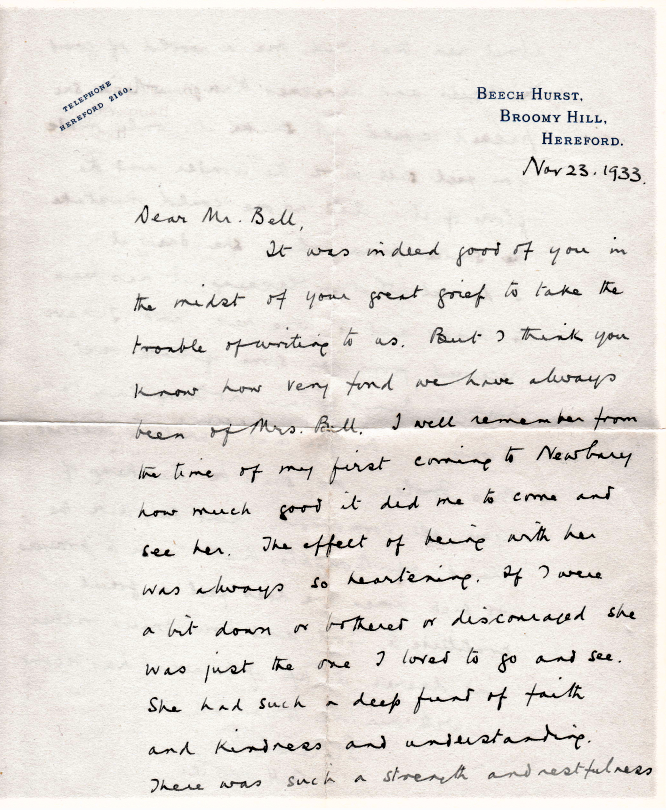 TELEPHONE
HEREFORD 2160.
BEECH HURST,
BROOMY HILL,
HEREFORD.
Nov 23. 1933.
Dear Mr. Bell,
It was indeed good of you in
the midst of your great grief to take the
trouble of writing to us. But I think you
know how very fond we have always
been of Mrs. Bell. I well remember from
the time of my first coming to Newbury
how much good it did me to come and
see her. The effect of being with her
was always so heartening. If I were
a bit down or bothered or discouraged she
was just the one I loved to go and see.
She had such a deep fund of faith
and kindness and understanding.
There was such a strength and restfulness